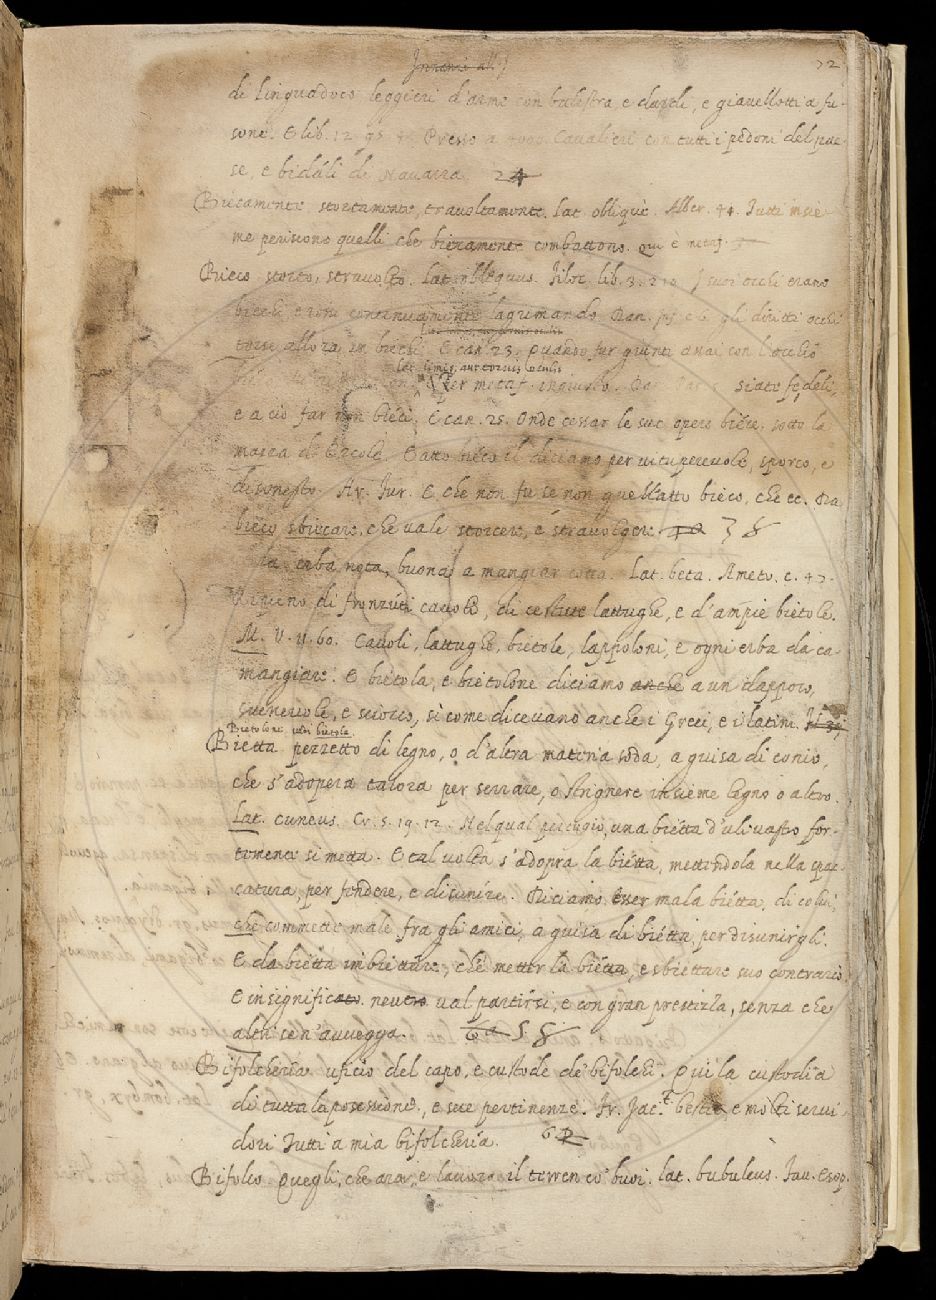 72
di Linguadoco leggieri d'arme con balestra e dardi, e giavellotti a fu-
sone. E lib. 12. 95. Presso a 4000. Cavalieri con tutti i pedoni del pae-
se, e bidáli di Navarra. 24
Biecamente stortamente, travoltamente. Lat. obliquè. Alber. 44. Tutti insie-
me periscono quelli che biecamente combattono. Qui è metaf.
Bieco storto, stravolto. Lat. obliquus. Filoc. lib. 3. 210. I suoi occhi erano
biechi e rossi continuamente lagrimando. Dan. gli diritti occhi
Lat. torvis, aut torvis oculis
torse allora in biechi. E can. 23. Quando fur giunti assai con l'occhio
Lat. limis, aut torvis oculis
Per metaf. ingiusto. Dan. Par. 5. siate fedeli,
e a ciò far non bieci. E can. 25. Onde cessar le sue opere biéce. sotto la
mazza d'Ercole. E atto biéco il diciamo per vituperevole, sporco, e
disonesto. Ar. Fur. E che non fu se non quell'atto bieco, che ec. Da
biéco sbiecare. che vale storcere, e stravolgere. 3 8
erba nota, buona a mangiar cotta. Lat. beta. Ameto. c. 42.
Ripieno di fronzúti cavoli, di cestute lattughe, e d'ampie biétole.
M. V. 11. 60. Cavoli, lattughe, bietole, lappoloni, e ogni erba da ca-
mangiare. E biétola, e biétolone diciamo anche a un dappoco,
svenevole, e sciocco, si come dicevano anche i Greci, e i latini.
Bietolone, vedi bietola.
Biétta pezzetto di legno, o d'altra materia soda, a guisa di conio,
che s'adopera talora per serrare, o strignere insieme legno o altro.
Lat. cuneus. Cr. 5. 19. 12. Nel qual pertugio, una biétta d'ulivastro for-
temente si metta. E tal volta s'adopra la biétta, mettendola nella spac-
catura, per fendere, e disunire. Diciamo esser mala biétta, di colui,
che commette male fra gli amici, a guisa di biétta, per disunirgli.
E da biétta imbiettare, che metter la biétta, e sbiettare suo contrario.
E in significato neutro val partirsi, e con gran prestezza, senza che
altri se n'avvegga. 5 8
Bifolcheria uficio del capo, e custode de' bifolchi. Qui la custodia
di tutta la posessione, e sue pertinenze. Fr. Jac. T. bestie e molti servi-
dori Tutti a mia bifolcheria. 6
Bifolco Quegli, che ara, e lavora il terren co' buoi. lat. bubulcus. Fav. Esop.